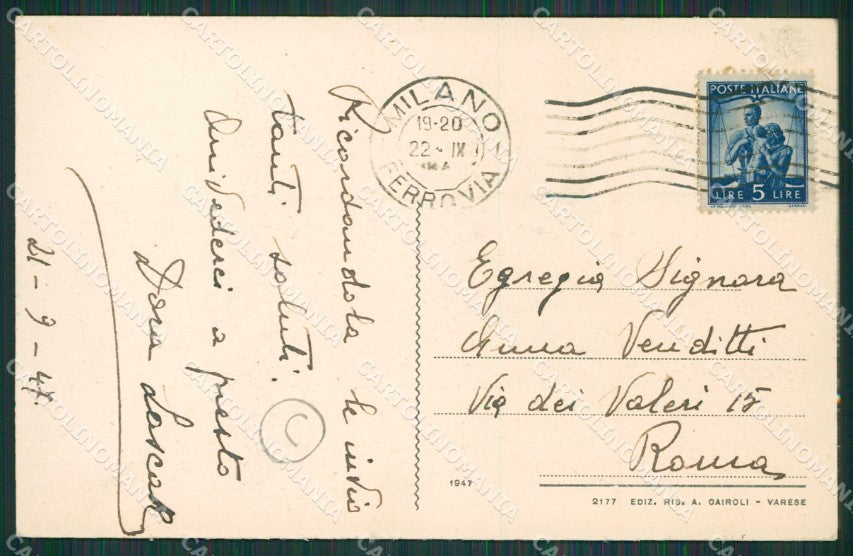 Ricordandola le invio
tanti saluti.
Arrivederci a presto
Dora
21-9-47.
MILANO
19-20
22-IX
FERROVIA
POSTE ITALIANE
LIRE 5 LIRE
Egregia Signora
Anna Venditti
Via dei Valeri 15
Roma
1947
2177 EDIZ. RIS. A. GAIROLI - VARESE
CARTOLINOMANIA